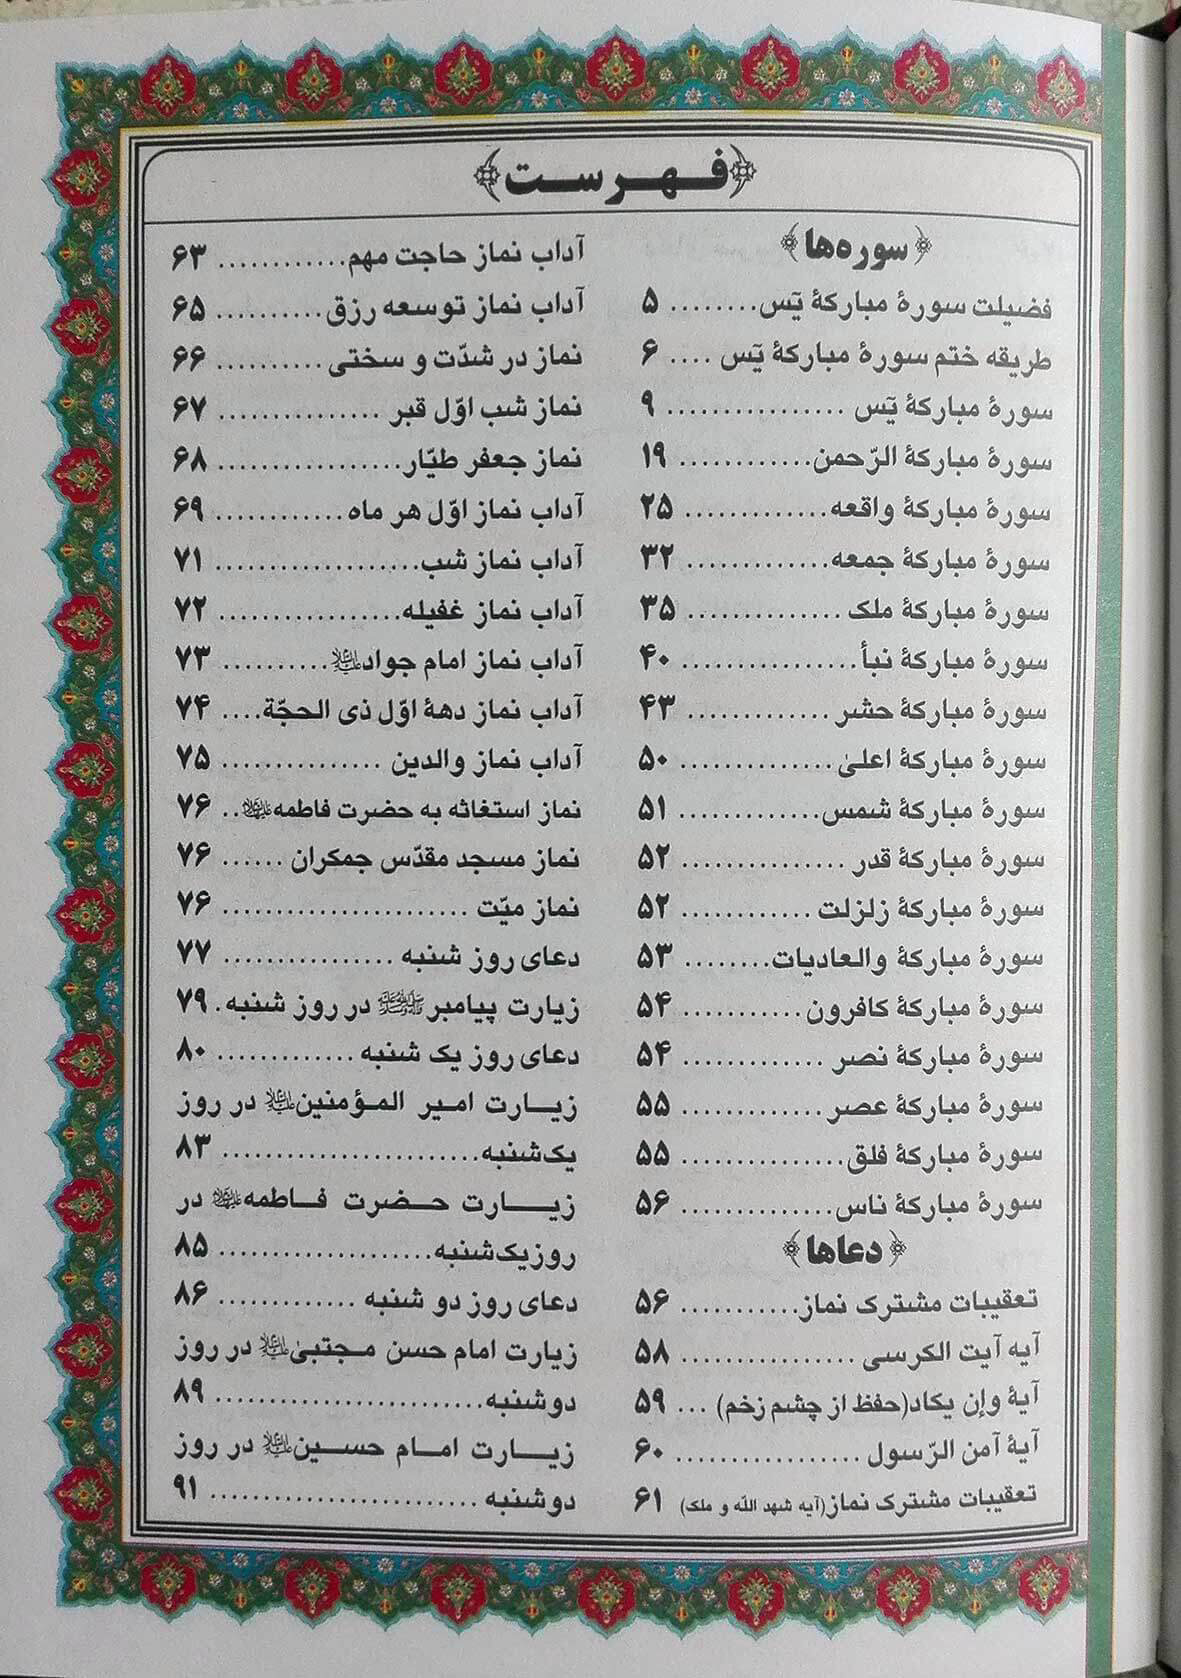 فهرست
سوره‌ها
فضیلت سورهٔ مبارکهٔ یٓس ........ ۵
طریقه ختم سورهٔ مبارکهٔ یٓس .... ۶
سورهٔ مبارکهٔ یٓس ................ ۹
سورهٔ مبارکهٔ الرّحمن ............ ۱۹
سورهٔ مبارکهٔ واقعه ............. ۲۵
سورهٔ مبارکهٔ جمعه ............. ۳۲
سورهٔ مبارکهٔ ملک ............. ۳۵
سورهٔ مبارکهٔ نبأ ................ ۴۰
سورهٔ مبارکهٔ حشر ............. ۴۳
سورهٔ مبارکهٔ اعلیٰ .............. ۵۰
سورهٔ مبارکهٔ شمس ............. ۵۱
سورهٔ مبارکهٔ قدر ............... ۵۲
سورهٔ مبارکهٔ زلزلت ............ ۵۲
سورهٔ مبارکهٔ والعادیات ........ ۵۳
سورهٔ مبارکهٔ کافرون ........... ۵۴
سورهٔ مبارکهٔ نصر ............. ۵۴
سورهٔ مبارکهٔ عصر ............. ۵۵
سورهٔ مبارکهٔ فلق ............... ۵۵
سورهٔ مبارکهٔ ناس .............. ۵۶
دعاها
تعقیبات مشترک نماز ........... ۵۶
آیه آیت الکرسی ................ ۵۸
آیهٔ وإن یکاد(حفظ از چشم زخم) ... ۵۹
آیهٔ آمن الرّسول ................. ۶۰
تعقیبات مشترک نماز(آیه شهد الله و ملک) ۶۱
آداب نماز حاجت مهم ............ ۶۳
آداب نماز توسعه رزق .......... ۶۵
نماز در شدّت و سختی .......... ۶۶
نماز شب اوّل قبر ............... ۶۷
نماز جعفر طیّار ................. ۶۸
آداب نماز اوّل هر ماه ............ ۶۹
آداب نماز شب ................... ۷۱
آداب نماز غفیله ................. ۷۲
آداب نماز امام جواد علیه‌السلام .......... ۷۳
آداب نماز دههٔ اوّل ذی الحجّة .... ۷۴
آداب نماز والدین ............... ۷۵
نماز استغاثه به حضرت فاطمه علیهاالسلام .. ۷۶
نماز مسجد مقدّس جمکران ...... ۷۶
نماز میّت ....................... ۷۶
دعای روز شنبه ................ ۷۷
زیارت پیامبر ﷺ در روز شنبه . ۷۹
دعای روز یک شنبه ............. ۸۰
زیارت امیر المؤمنین علیه‌السلام در روز
یک‌شنبه ........................ ۸۳
زیارت حضرت فاطمه علیهاالسلام در
روزیک‌شنبه .................... ۸۵
دعای روز دو شنبه ............. ۸۶
زیارت امام حسن مجتبیٰ علیه‌السلام در روز
دوشنبه ......................... ۸۹
زیارت امام حسین علیه‌السلام در روز
دوشنبه ......................... ۹۱